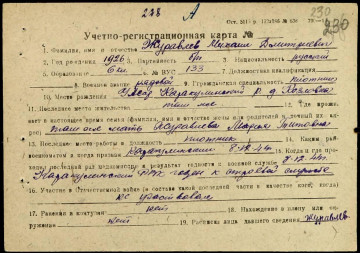 238 А
230
230
Учетно-регистрационная карта №
1. Фамилия, имя и отчество Журавлев Михаил Дмитриевич
2. Год рождения 1926 3. Партийность б/п 4. Национальность русский
5. Образование 6 кл. 6. № ВУС 133 7. Должностная квалификация
8. Воинское звание рядовой 9. Гражданская специальность плотник
10. Место рождения Каракулинский р. д.
11. Последнее место жительства там же 12. Где проживает в настоящее время семья (фамилия, имя и отчество жены или родителей и личный их адрес)
там же мать Журавлева Мария
13. Последнее место работы плотник 14. Каким райвоенкоматом и когда призван Каракулинским 8.12.44г. 15. Когда и где проходил последний раз медкомиссию и результат годности к военной службе 8.12.44г.
Каракулинский РВК годен к строевой службе
16. Участие в Отечественной войне (в составе какой последней части, в качестве кого, когда)
не участвовал
17. Ранения и контузии нет 18. Нахождение в плену или окружении
нет 19. Расписка лица давшего сведения Журавлев